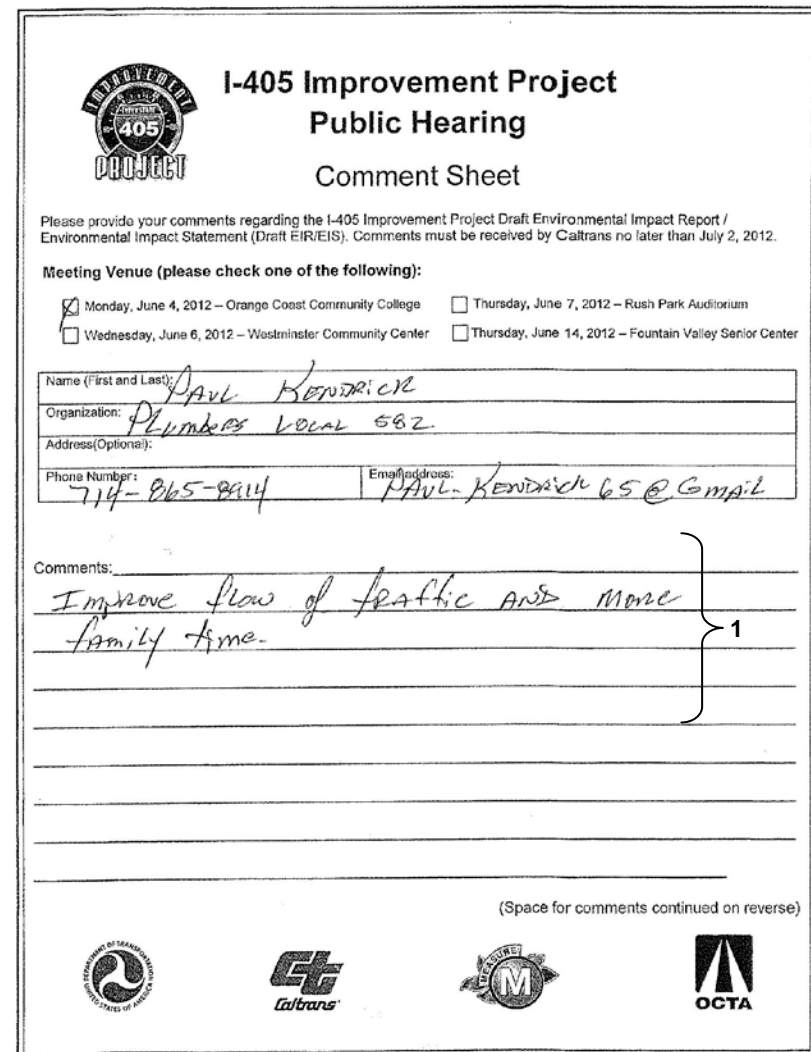 IMPROVEMENT
INTERSTATE
405
PROJECT
I-405 Improvement Project
Public Hearing
Comment Sheet
Please provide your comments regarding the I-405 Improvement Project Draft Environmental Impact Report /
Environmental Impact Statement (Draft EIR/EIS). Comments must be received by Caltrans no later than July 2, 2012.
Meeting Venue (please check one of the following):
Monday, June 4, 2012 – Orange Coast Community College
Thursday, June 7, 2012 – Rush Park Auditorium
Wednesday, June 6, 2012 – Westminster Community Center
Thursday, June 14, 2012 – Fountain Valley Senior Center
Name (First and Last): PAUL KENDRICK
Organization: PLumbers LOCAL 582
Address(Optional):
Phone Number: 714-865-8914
Email address: PAUL-KENDRICK 65 @ GmAiL
Comments:
Improve flow of traffic AND More
family time.
1
(Space for comments continued on reverse)
DEPARTMENT OF TRANSPORTATION
UNITED STATES OF AMERICA
Ct
Caltrans
MEASURE
M
OCTA